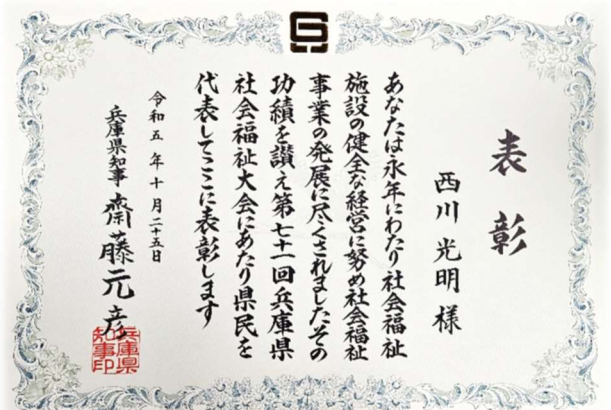 表彰
西川光明様
あなたは永年にわたり社会福祉
施設の健全な経営に努め社会福祉
事業の発展に尽くされましたその
功績を讃え第七十一回兵庫県
社会福祉大会にあたり県民を
代表してここに表彰します
令和五年十月二十五日
兵庫県知事 齋藤元彦
兵庫県
知事印